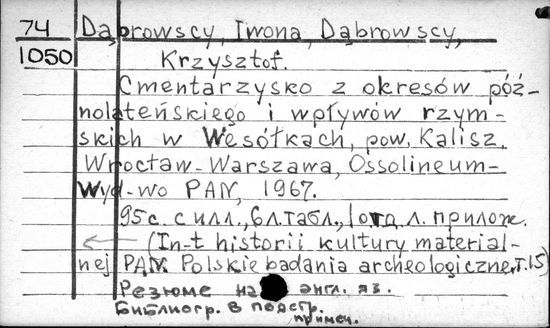 74 Dąbrowscy, Iwona, Dąbrowscy,
1050 Krzysztof.
Cmentarzysko z okresów póź-
nolateńskiego i wpływów rzym-
skich w Wesółkach, pow. Kalisz.
Wrocław-Warszawa, Ossolineum-
Wyd-wo PAN, 1967.
95 с. с илл., 6 л. табл., 1 отд. л. прилож.
(In-t historii kultury material-
nej PAN. Polskie badania archeologiczne, т. 15)
Резюме на англ. яз.
Библиогр. в подстр.
примеч.